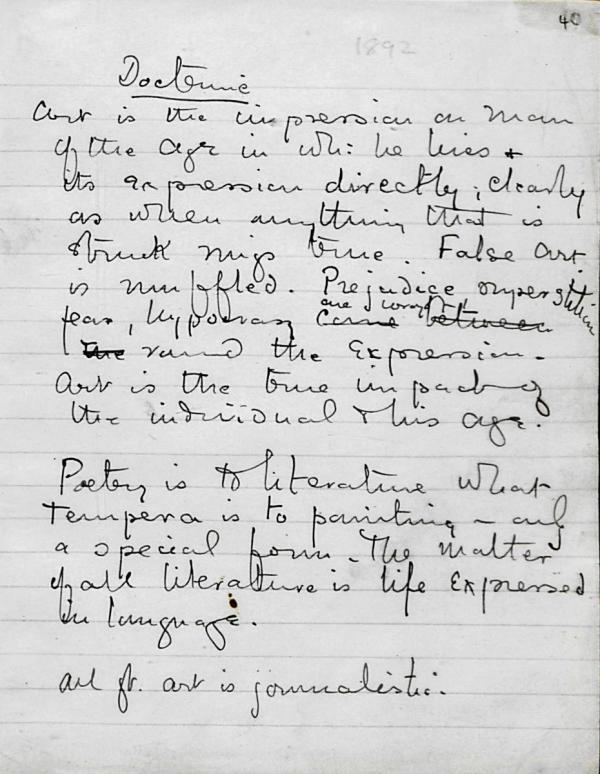 40
1892
Doctrine
Art is the impression on man
of the age in wh: he lives &
its expression directly; clearly
as when anything that is
struck rings true. False art
is muffled. Prejudice superstition
are wrapt
fear, hypocrisy came between
the round the expression.
Art is the true impact of
the individual & his age.
Poetry is to literature what
tempera is to painting - only
a special form. The matter
of all literature is life expressed
in language.
All gt. art is journalistic.